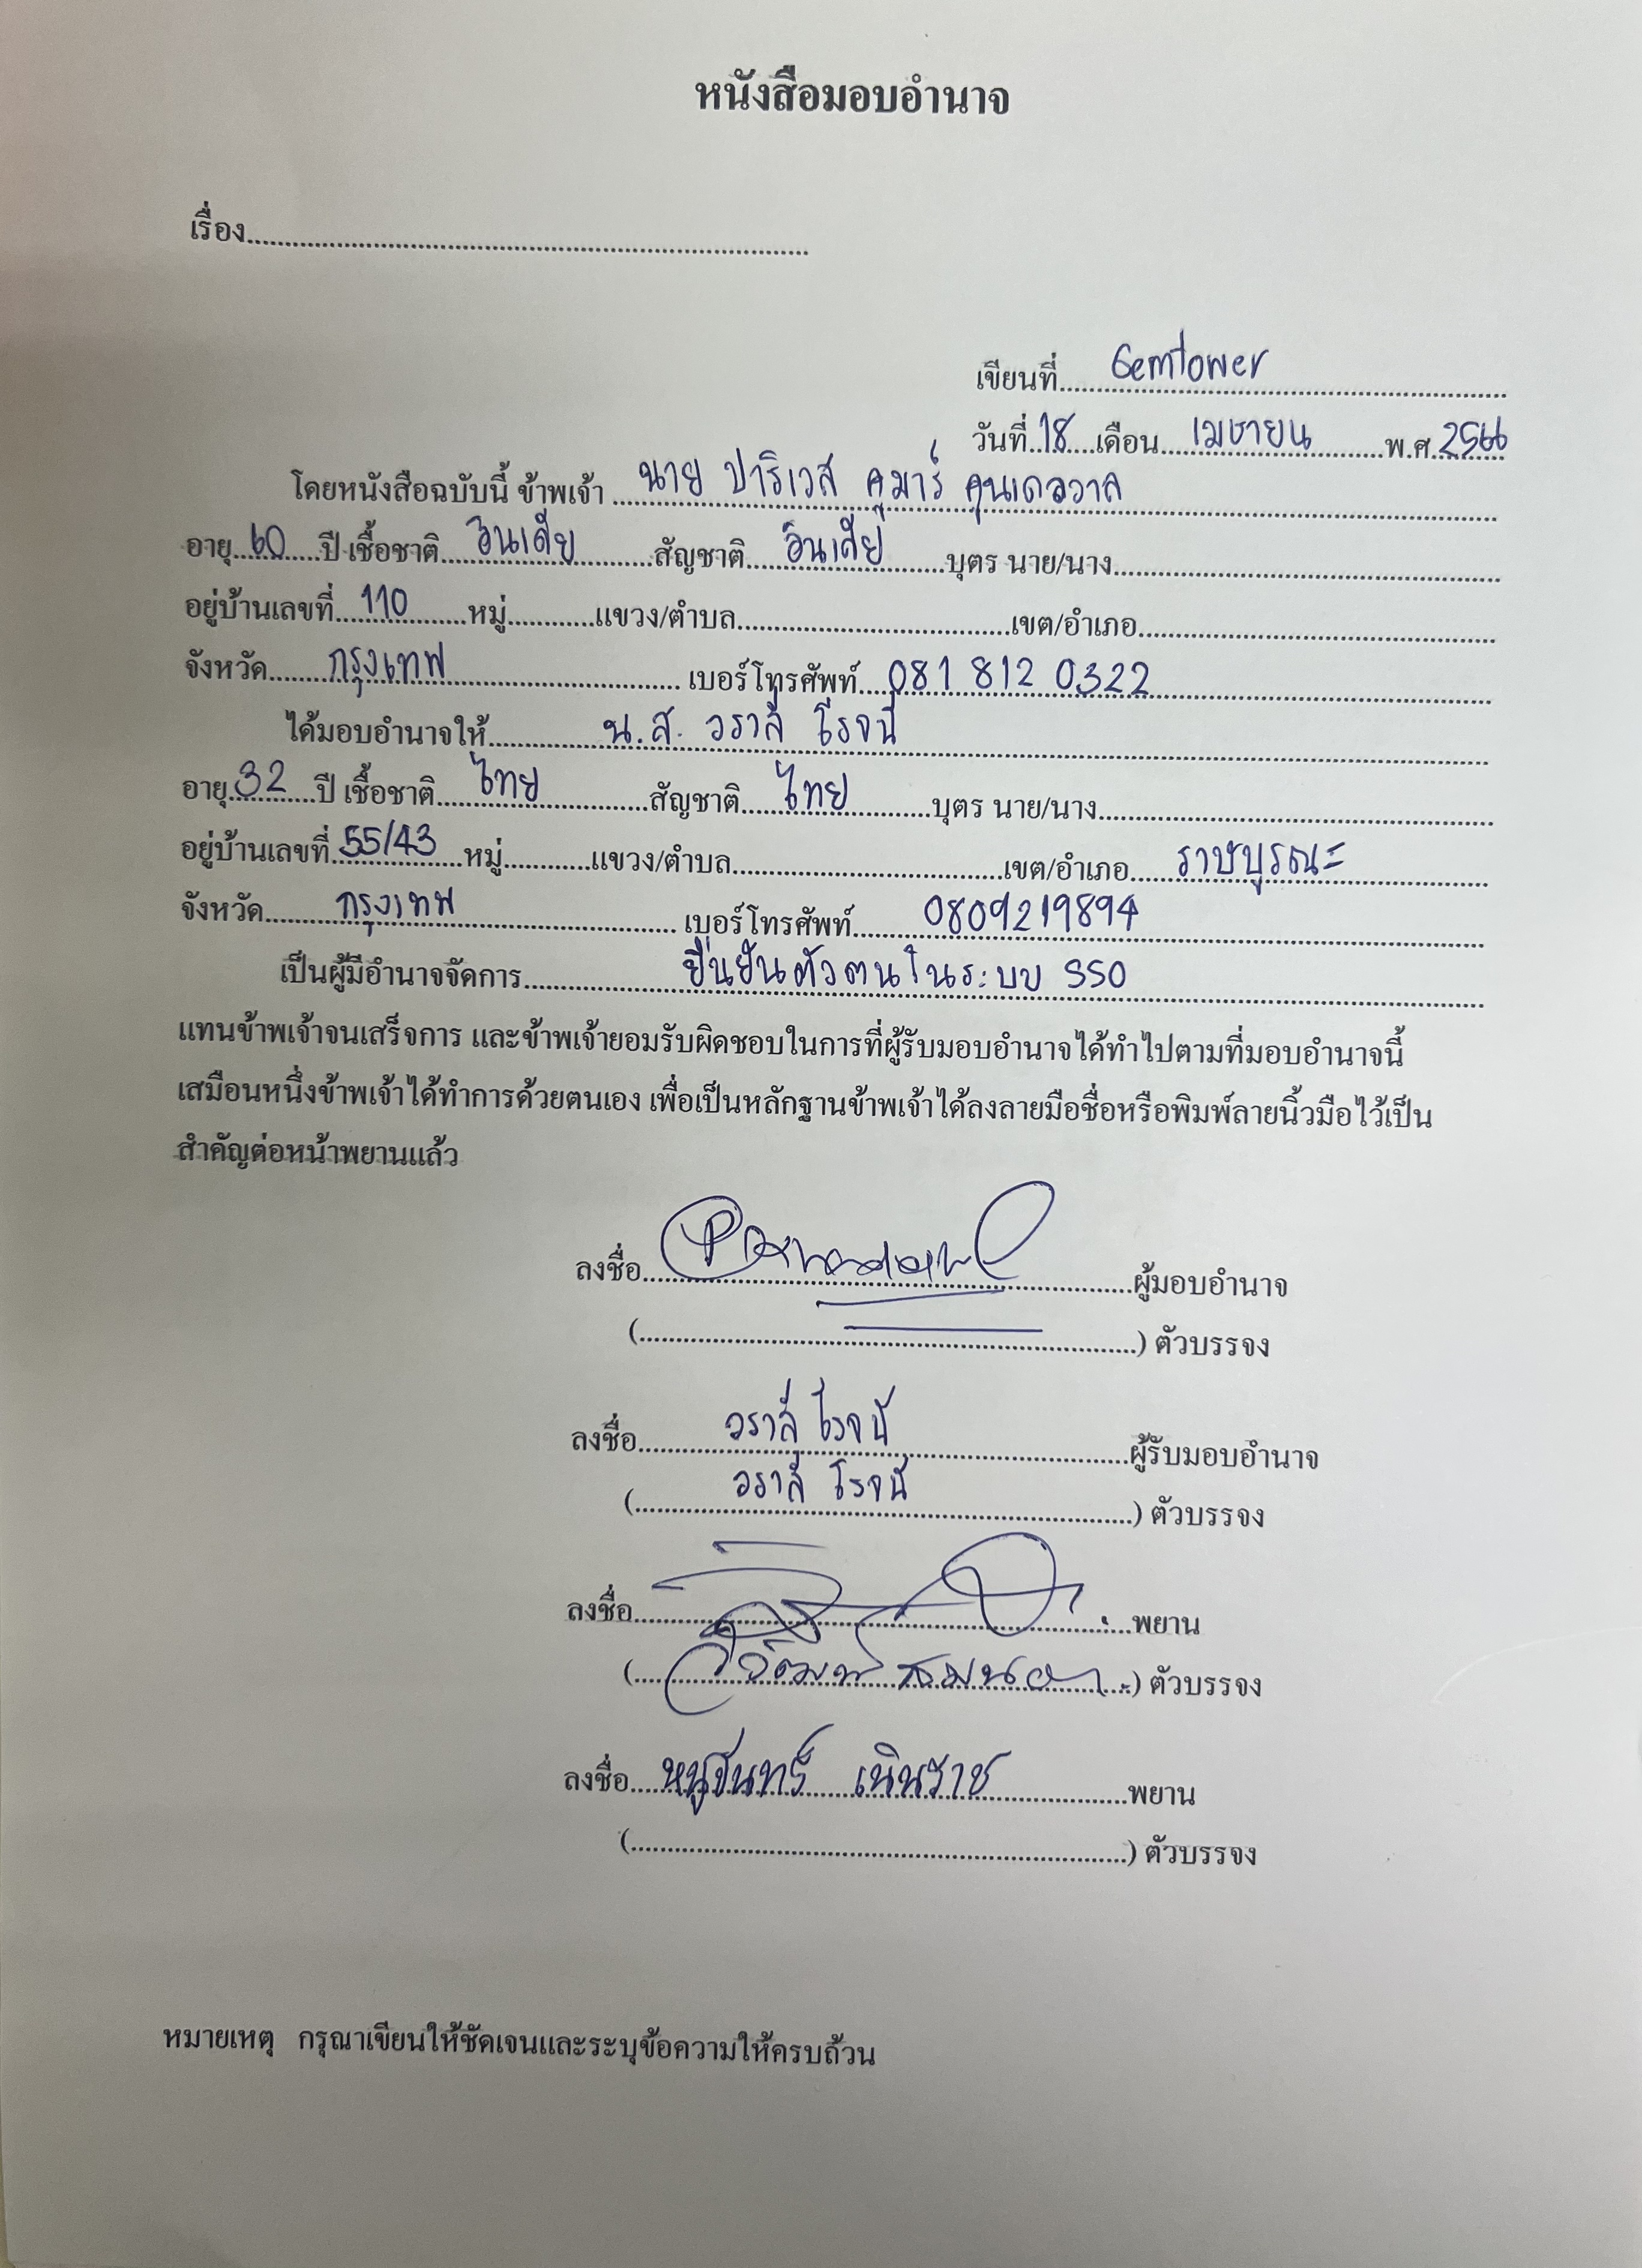 หนังสือมอบอำนาจ
เรื่อง........................................................................
เขียนที่.....Gemtower...............................
วันที่..18...เดือน....เมษายน..........พ.ศ.2566
โดยหนังสือฉบับนี้ ข้าพเจ้า นาย ปาริเวส คูมาร์ คุนเดลวาล
อายุ..60.....ปี เชื้อชาติ....อินเดีย..........สัญชาติ....อินเดีย........บุตร นาย/นาง..................................................
อยู่บ้านเลขที่...110........หมู่............แขวง/ตำบล....................................เขต/อำเภอ...............................................
จังหวัด........กรุงเทพ............................... เบอร์โทรศัพท์....081 812 0322............................................
ได้มอบอำนาจให้...............น.ส. วราลี โรจน์.............................................................................
อายุ.32.....ปี เชื้อชาติ....ไทย..............สัญชาติ....ไทย...........บุตร นาย/นาง....................................................
อยู่บ้านเลขที่ 55/43 ...หมู่............แขวง/ตำบล....................................เขต/อำเภอ.....ราษบูรณะ...................
จังหวัด.........กรุงเทพ.............................. เบอร์โทรศัพท์.........0809219894..............................................
เป็นผู้มีอำนาจจัดการ.....................ยืนยันตัวตนในระบบ SSO................................................
แทนข้าพเจ้าจนเสร็จการ และข้าพเจ้ายอมรับผิดชอบในการที่ผู้รับมอบอำนาจได้ทำไปตามที่มอบอำนาจนี้
เสมือนหนึ่งข้าพเจ้าได้ทำการด้วยตนเอง เพื่อเป็นหลักฐานข้าพเจ้าได้ลงลายมือชื่อหรือพิมพ์ลายนิ้วมือไว้เป็น
สำคัญต่อหน้าพยานแล้ว
ลงชื่อ.................................................................ผู้มอบอำนาจ
(..................................................................) ตัวบรรจง
ลงชื่อ............วราลี โรจน์...............................ผู้รับมอบอำนาจ
(.............วราลี โรจน์..............................) ตัวบรรจง
ลงชื่อ.................................................................พยาน
(..................................................................) ตัวบรรจง
ลงชื่อ....หนูจันทร์ เนินราช..................พยาน
(..................................................................) ตัวบรรจง
หมายเหตุ กรุณาเขียนให้ชัดเจนและระบุข้อความให้ครบถ้วน